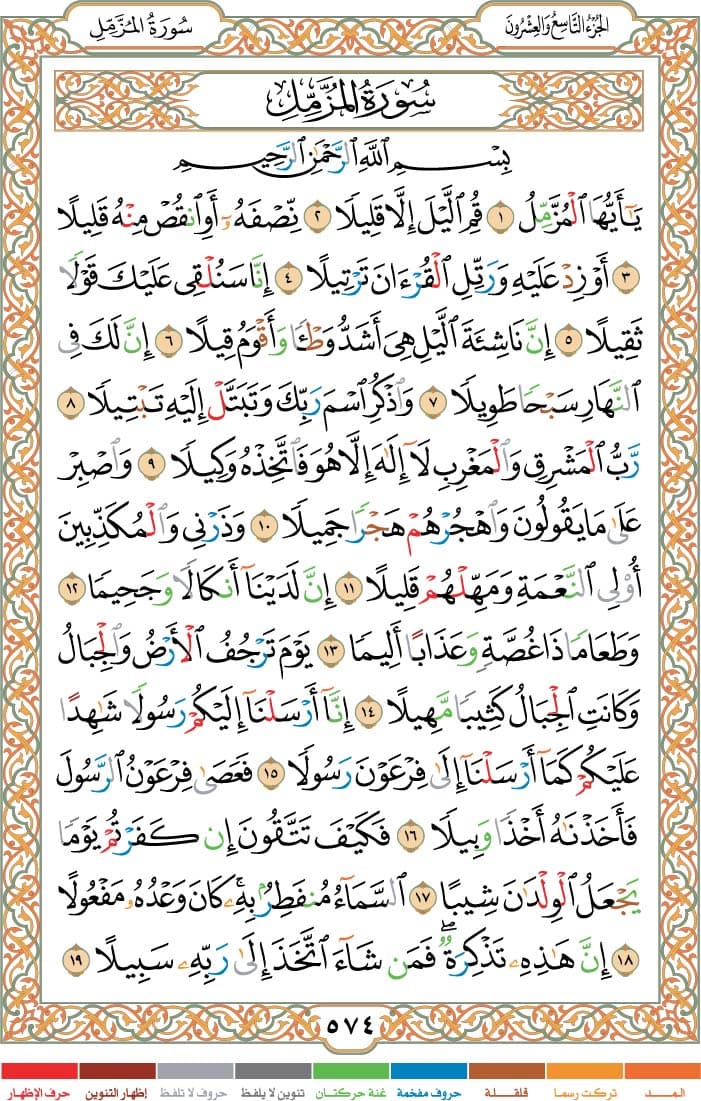 سُورَةُ المُزَّمِّلِ
الجُزْءُ التَّاسِعُ وَالعِشْرُونَ
سُورَةُ المُزَّمِّلِ
بِسْمِ ٱللَّهِ ٱلرَّحْمَٰنِ ٱلرَّحِيمِ
يَٰٓأَيُّهَا ٱلْمُزَّمِّلُ ١ قُمِ ٱلَّيْلَ إِلَّا قَلِيلًا ٢ نِّصْفَهُۥٓ أَوِ ٱنقُصْ مِنْهُ قَلِيلًا
٣ أَوْ زِدْ عَلَيْهِ وَرَتِّلِ ٱلْقُرْءَانَ تَرْتِيلًا ٤ إِنَّا سَنُلْقِى عَلَيْكَ قَوْلًا
ثَقِيلًا ٥ إِنَّ نَاشِئَةَ ٱلَّيْلِ هِىَ أَشَدُّ وَطْـًٔا وَأَقْوَمُ قِيلًا ٦ إِنَّ لَكَ فِى
ٱلنَّهَارِ سَبْحًا طَوِيلًا ٧ وَٱذْكُرِ ٱسْمَ رَبِّكَ وَتَبَتَّلْ إِلَيْهِ تَبْتِيلًا ٨
رَّبُّ ٱلْمَشْرِقِ وَٱلْمَغْرِبِ لَآ إِلَٰهَ إِلَّا هُوَ فَٱتَّخِذْهُ وَكِيلًا ٩ وَٱصْبِرْ
عَلَىٰ مَا يَقُولُونَ وَٱهْجُرْهُمْ هَجْرًا جَمِيلًا ١٠ وَذَرْنِى وَٱلْمُكَذِّبِينَ
أُو۟لِى ٱلنَّعْمَةِ وَمَهِّلْهُمْ قَلِيلًا ١١ إِنَّ لَدَيْنَآ أَنكَالًا وَجَحِيمًا ١٢
وَطَعَامًا ذَا غُصَّةٍ وَعَذَابًا أَلِيمًا ١٣ يَوْمَ تَرْجُفُ ٱلْأَرْضُ وَٱلْجِبَالُ
وَكَانَتِ ٱلْجِبَالُ كَثِيبًا مَّهِيلًا ١٤ إِنَّآ أَرْسَلْنَآ إِلَيْكُمْ رَسُولًا شَٰهِدًا
عَلَيْكُمْ كَمَآ أَرْسَلْنَآ إِلَىٰ فِرْعَوْنَ رَسُولًا ١٥ فَعَصَىٰ فِرْعَوْنُ ٱلرَّسُولَ
فَأَخَذْنَٰهُ أَخْذًا وَبِيلًا ١٦ فَكَيْفَ تَتَّقُونَ إِن كَفَرْتُمْ يَوْمًا
يَجْعَلُ ٱلْوِلْدَٰنَ شِيبًا ١٧ ٱلسَّمَآءُ مُنفَطِرٌۢ بِهِۦ ۚ كَانَ وَعْدُهُۥ مَفْعُولًا
١٨ إِنَّ هَٰذِهِۦ تَذْكِرَةٌ ۖ فَمَن شَآءَ ٱتَّخَذَ إِلَىٰ رَبِّهِۦ سَبِيلًا ١٩
٥٧٤
المــــد تركت رسما قلقـــلة حروف مفخمة غنة حركتان تنوين لا يلفظ حروف لا تلفظ إظهار التنوين حرف الإظهار